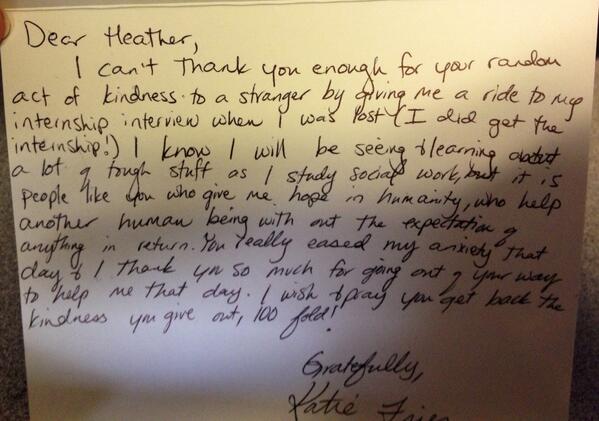 Dear Heather,
I can't thank you enough for your random
act of kindness to a stranger by giving me a ride to my
internship interview when I was lost (I did get the
internship!) I know I will be seeing & learning about
a lot of tough stuff as I study social work, but it is
people like you who give me hope in humanity, who help
another human being with out the expectation of
anything in return. You really eased my anxiety that
day & I thank you so much for going out of your way
to help me that day. I wish & pray you get back the
kindness you give out, 100 fold!
Gratefully,
Katie